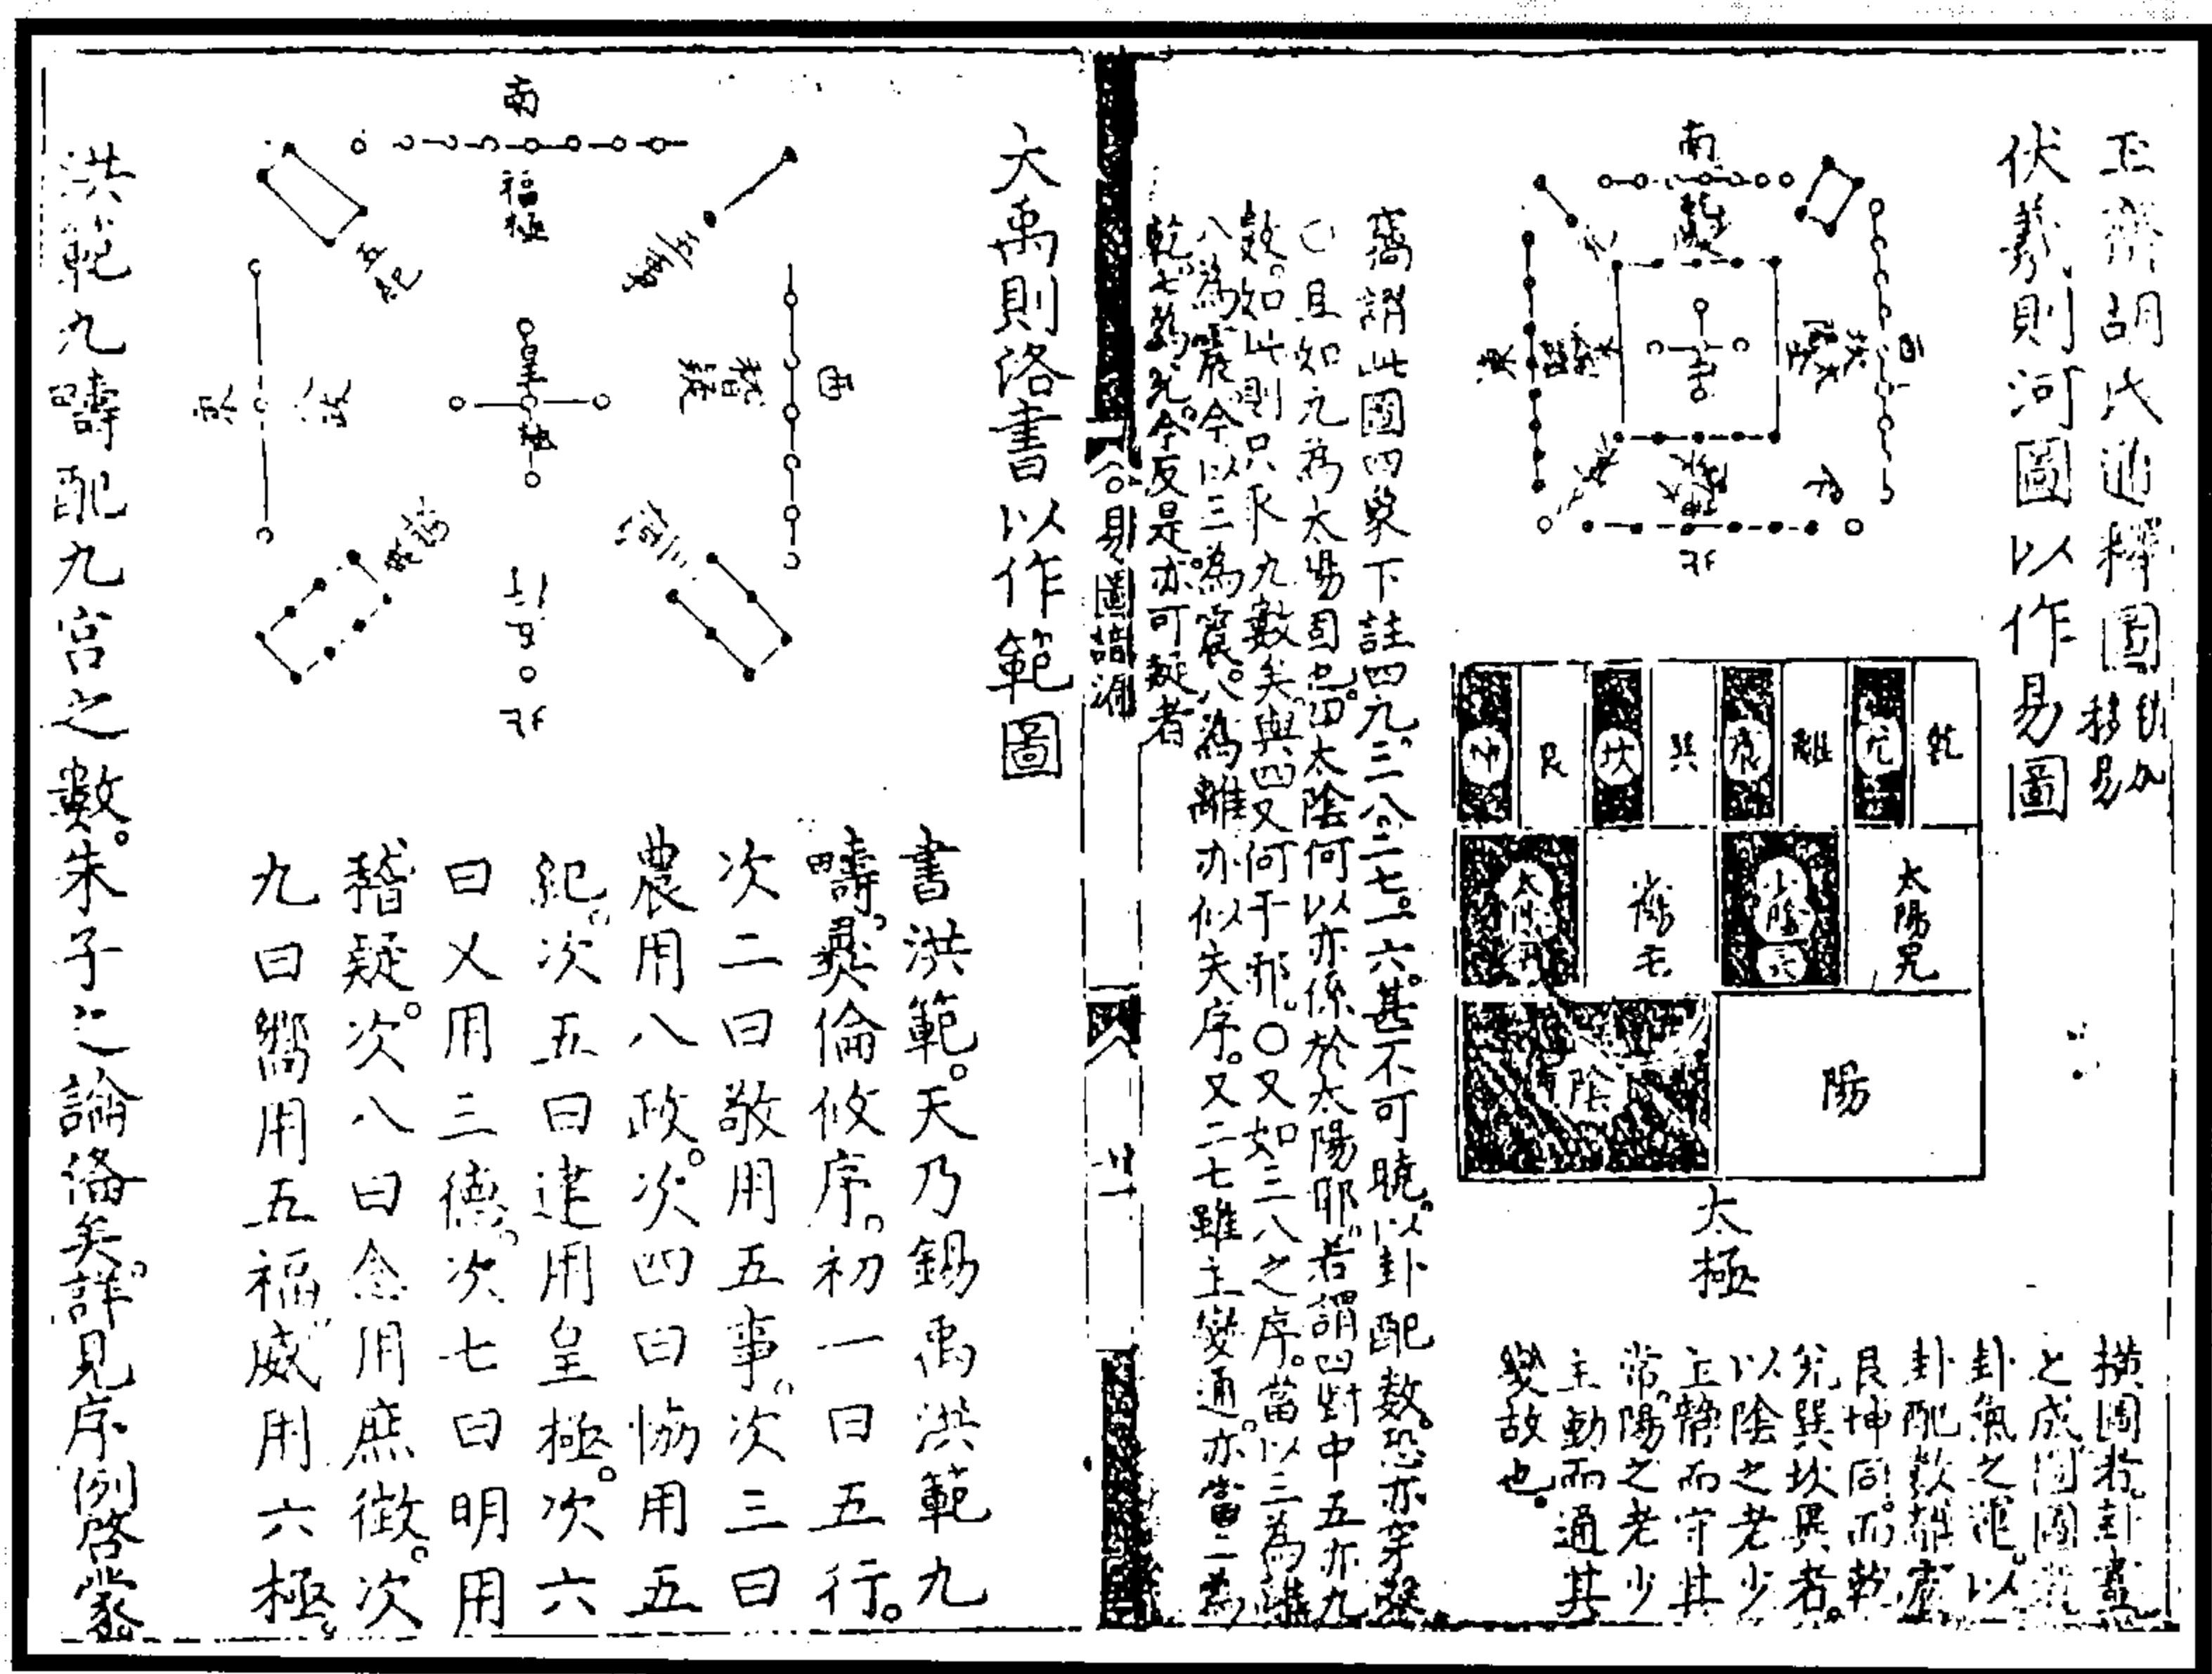 玉齋胡氏通釋圖
移易
伏羲則河圖以作易圖
南
北
乾
兌
離
震
巽
坎
艮
坤
太陽
陽
陰
太極
橫圖者卦畫
之成圓圖者
卦氣之運以
卦配數離震
艮坤同而乾
兌巽坎異者
以陰之老少
主靜而守其
常陽之老少
主動而通其
變故也
竊謂此圖四象下註四九三八二七一六甚不可曉以卦配數恐亦穿鑿
〇且如九為太陽固也四太陰何以亦係於太陽耶若謂四對中五亦九
數如此則只承九數矣與四又何干邪〇又如三八之序當以三為離
八為震今以三為震八為離亦似失序又二七雖主變通亦當二為
乾七為兌今反是亦可疑者
大禹則洛書以作範圖
南
福極
五紀
皇極
稽疑
西
北
書洪範天乃錫禹洪範九
疇彝倫攸序初一曰五行
次二曰敬用五事次三曰
農用八政次四曰協用五
紀次五曰建用皇極次六
曰乂用三德次七曰明用
稽疑次八曰念用庶徵次
九曰嚮用五福威用六極
洪範九疇配九宮之數朱子之論備矣詳見序例啓蒙